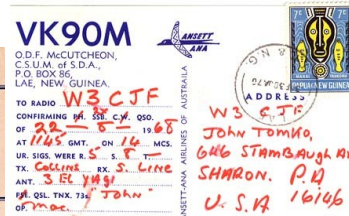 VK9OM
O.D.F. McCUTCHEON,
C.S.U.M. of S.D.A.,
P.O. BOX 86,
LAE, NEW GUINEA.
ANSETT
ANA
TO RADIO W3CJF
CONFIRMING PH. SSB. C.W. QSO.
OF 22 — 8 — 1968
AT 1145 GMT. ON 14 MCS.
UR. SIGS. WERE R. 5 S. 8 T. —
TX. Collins RX. S. LINE
ANT. 3 EL YAGI
PSE. QSL. TNX. 73s JOHN
OP. Mac.
ANSETT-ANA AIRLINES OF AUSTRALIA
7c 7c
PAPUA & NEW GUINEA
ADDRESS
W3 CJF
JOHN TOMKO,
646 STAMBAUGH AV
SHARON. P.A
U.S.A 16146